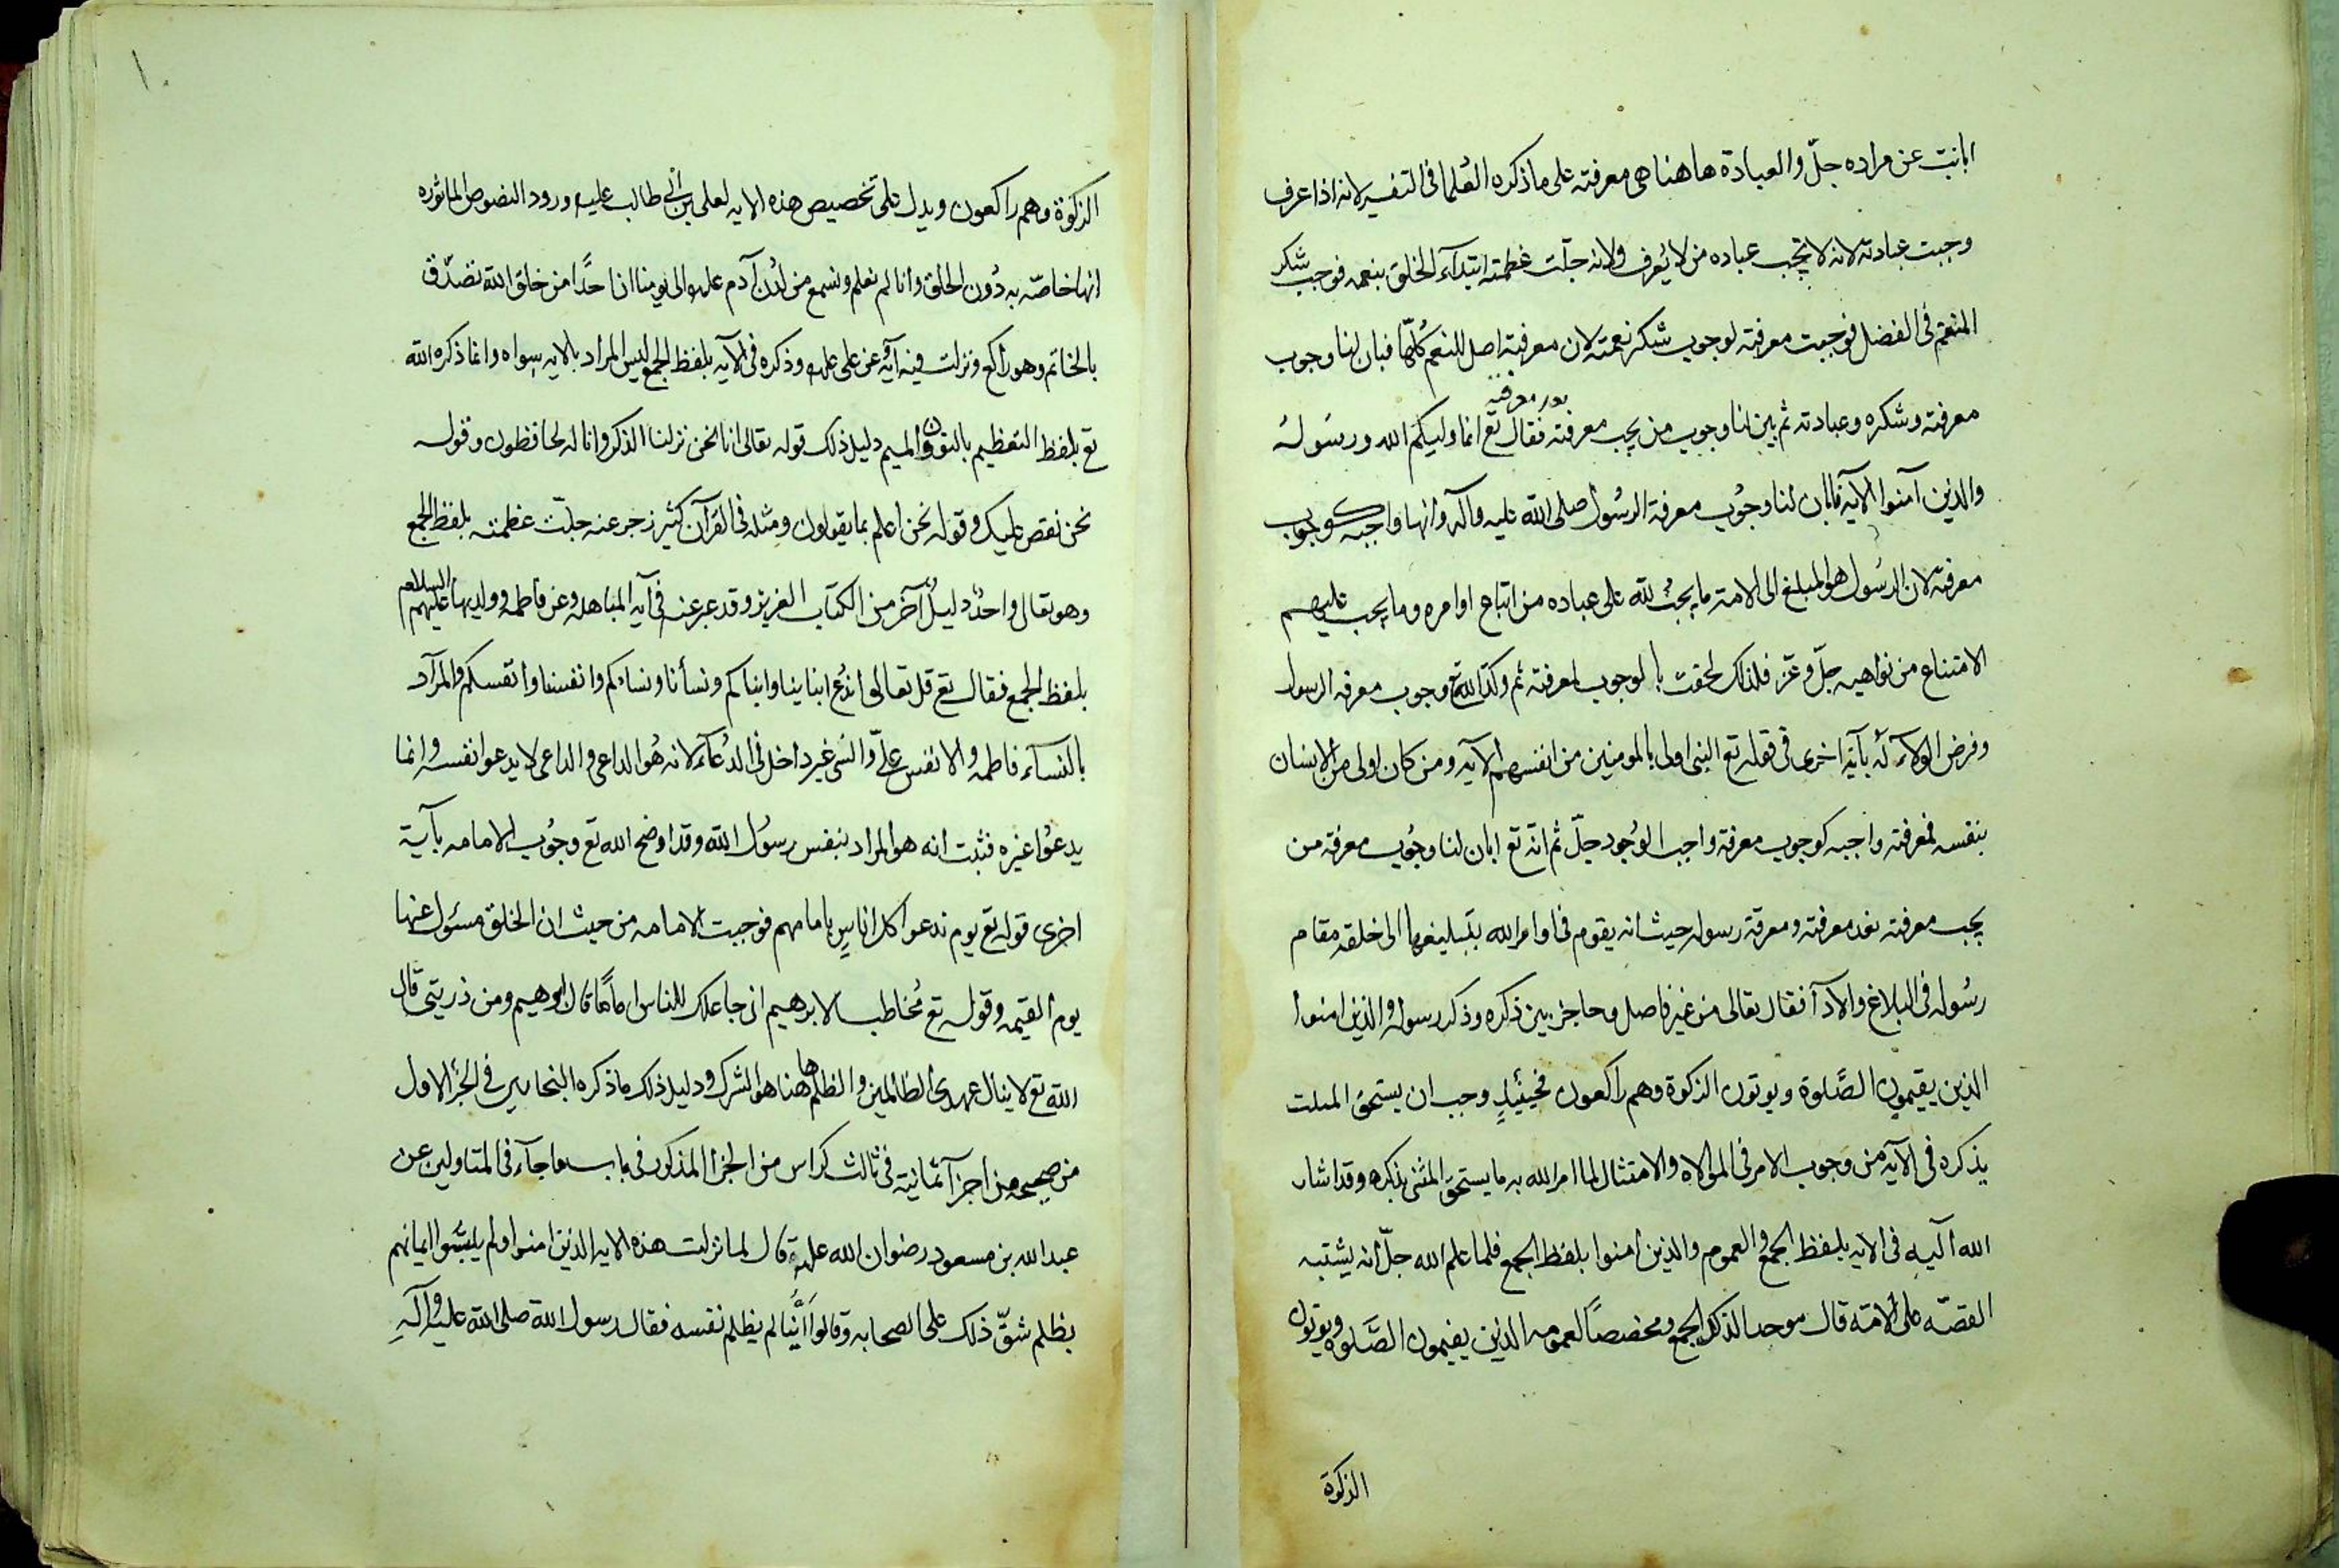 ابانت عن مراده جلّ والعبادة هاهنا هى معرفته على ما ذكره العُلما فى التفسير لانه اذا عرف
وجبت عبادته لانه لا تجب عباده من لا يُعرف ولانه جلّت عظمته ابتدآء الخلق بنعمه فوجب شكر
المنعم فى الفضل فوجبت معرفته لوجوب شكر نعمته لان معرفته اصل للنعم كُلّها فبان لنا وجوب
معرفته وشكره وعبادته ثم بين لنا وجوب من يجب معرفته فقال تع انما وليكم الله ورسُولهُ
والذين آمنوا الآية فابان لنا وجُوب معرفة الرسُول صلى الله عليه وآله وانها واجبه كوجوب
معرفته لان الرسُول هو المبلغ الى الامته ما يجبُ لله على عباده من اتباع اوامره وما يجب عليهم
الامتناع من نواهيه جلّ وعزّ فلذلك لحقت بالوجوب لمعرفته ثم وكّد الله تع وجوب معرفه الرسول
وفرض الولآء لهُ بآية اخرى فى قوله تع النبى اولى بالمومنين من انفسهم الآيه ومن كان اولى من الانسان
بنفسه فمعرفته واجبه كوجوب معرفة واجب الوُجود جلّ ثم انّه تع ابان لنا وجُوب معرفة من
يجب معرفته بعد معرفته ومعرفة رسوله حيث انه يقوم فى اوامر الله بتبليغها الى خلقه مقام
رسُوله فى البلاغ والادآ فقال تعالى من غير فاصل وحاجز بين ذكره وذكر رسوله والذين امنوا
الذين يقيمون الصَّلوة ويوتون الزكوة وهم راكعون فحينئيذٍ وجب ان يستحق المثبت
بذكره فى الآية من وجوب الامر فى الموالاه والامتثال لما امر الله به ما يستحق المثنى بذكره وقد اشار
الله اليه فى الايه بلفظ الجمع والعموم والذين امنوا بلفظ الجمع فلما علم الله جلّ انه يشتبه
القصّه على الامّه قال موحدا لذلك الجمع ومخصصاً لعمومه الذين يقيمون الصّلوه ويوتون
الزكوة
الزكوة وهم راكعون ويدل على تخصيص هذه الايه لعلى بن أبى طالب عليه ورود النصوص الماثوره
انها خاصّه به دُون الخلق وانا لم نعلم ونسمع من لدُن آدم علهو الى يومنا ان احدًا من خلق الله تصدّق
بالخاتم وهو راكع ونزلت فيه آية عن على علهو وذكره فى الآيه بلفظ الجمع ليس المراد بالايه سواه وانما ذكره الله
تع بلفظ التعظيم بالنون والميم دليل ذلك قوله تعالى انا نحن نزلنا الذكر وانا له لحافظون وقوله
نحن نقص عليك وقوله نحن اعلم بما يقولون ومثله فى القرآن كثير زجر عنه جلّت عظمته بلفظ الجمع
وهو تعال واحدٌ دليلٌ آخر من الكتاب العزيز وقد عبر عنه فى آيه المباهله وعن فاطمه وولديها عليهم السلام
بلفظ الجمع فقال تع قل تعالوا ندع ابناينا وابناكم ونسأنا ونساءكم وانفسنا وانفسكم والمرآد
بالنسآء فاطمه والانفس علىّ والنبى غير داخل فى الدُعآء لانه هُو الداعى والداعى لا يدعوا نفسه وانما
يدعُوا غيره فثبت انه هو المراد بنفس رسُول الله وقد اوضح الله تع وجُوب الامامه بآية
اخرى قوله تع يوم ندعوا كل اناسٍ بامامهم فوجبت الامامه من حيث ان الخلق مسئول عنها
يوم القيمه وقوله تع مُخاطب لابرهيم انى جاعلك للناس اماًما قال ابرهيم ومن ذريتى قال
الله تع لا ينال عهدى الظالمين والظلم هاهنا هو الشرك ودليل ذلك ما ذكره البخارى فى الجزُ الاول
من صحيحه من اجزآ ثمانية فى ثالث كراس من الجزا المذكور فى باب ما جآء فى المتاولين عن
عبد الله بن مسعود رضوان الله عليه قال لما نزلت هذه الايه الذين امنوا ولم يلبسُوا ايمانهم
بظلم شقّ ذلك على الصحابه وقالوا اَيُّنا لم يظلم نفسه فقال رسول الله صلى الله عليه وآلهِ